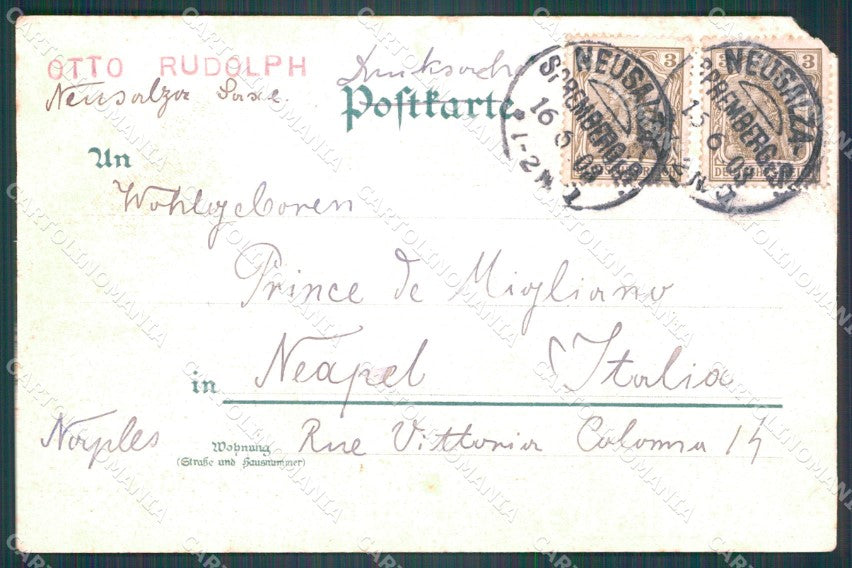 OTTO RUDOLPH
Neusalza Saxe
Drucksache
Postkarte
An
Wohlgeboren
Prince de Migliano
in Neapel Italia
Naples
Wohnung
(Straße und Hausnummer)
Rue Vittoria Colonna 14
3
NEUSALZA-
SPREMBERG
16 6 03
1-2 N
3
NEUSALZA-
SPREMBERG
15 6 03
CARTOLINOMANIA